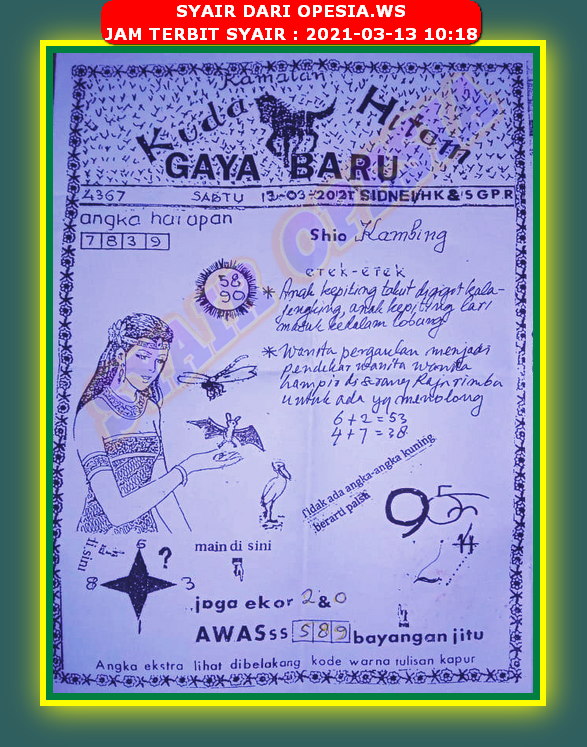 SYAIR DARI OPESIA.WS
JAM TERBIT SYAIR : 2021-03-13 10:18
Ramalan
Kuda Hitam
GAYA BARU
1367 SABTU 13-03-2021 SIDNEI/HK & SGPR
angka harapan
7 8 3 9
Shio Kambing
erek-erek
58
90
* Anak kepiting takut digigit kala-
jengking, anak kepiting lari
masuk kedalam lobang
* Wanita pergaulan menjadi
pendekar wanita wanita
hampir di Raja rimba
untuk ada yg menolong
6+2=53
4+7=38
Tidak ada angka-angka kuning
berarti palsu
9
di sini
6
8 3
1
?
main di sini
14
jaga ekor 2 & 0
AWASss 5 8 9 bayangan jitu
Angka ekstra lihat dibelakang kode warna tulisan kapur
SYAIR OPESIA